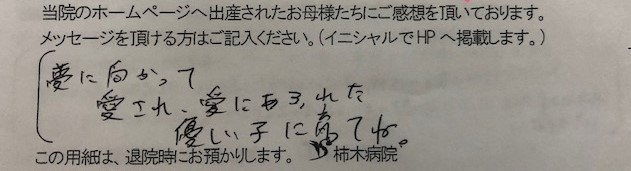 当院のホームページへ出産されたお母様たちにご感想を頂いております。
メッセージを頂ける方はご記入ください。(イニシャルでHPへ掲載します。)
夢に向かって
愛され、愛にあふれた
優しい子に育てね。
この用紙は、退院時にお預かりします。 柿木病院